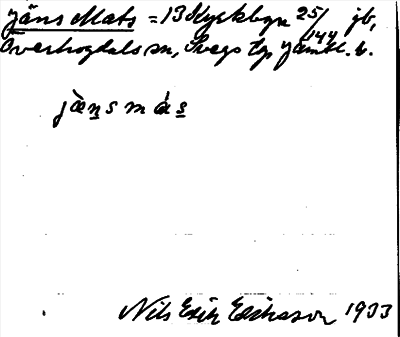 Jäns Mats = 13 Kyrkbyn 25/144 jb,
Överhogdals sn, Svegs tg Jämtl. l.
jæ̀nsmás
Nils Erik Eriksson 1933